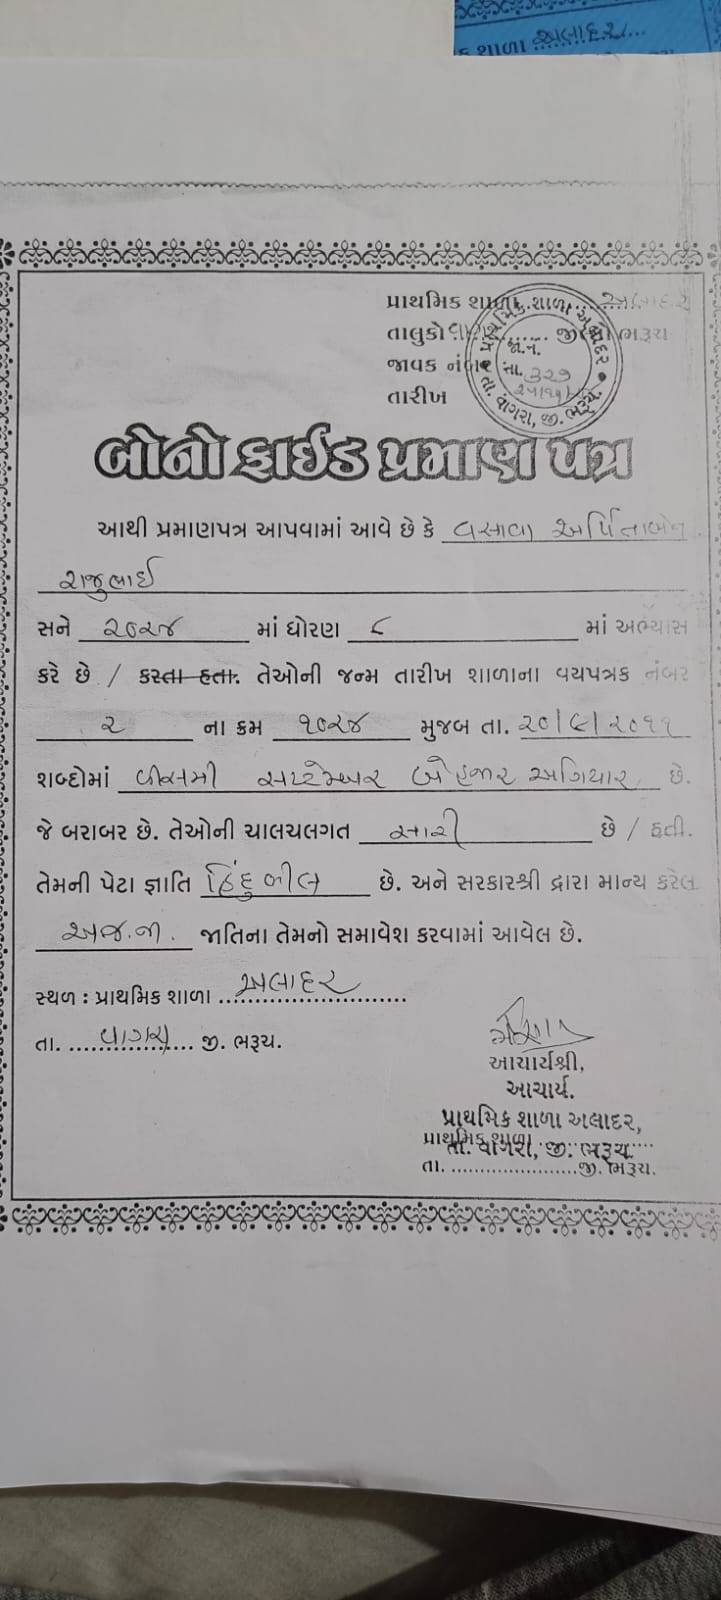 ક શાળા અલાદર...
પ્રાથમિક શાળા અલાદર
તાલુકો જીલ્લો ભરૂચ
જાવક નંબર
તારીખ
પ્રાથમિક શાળા અલાદર
જા.નં. ૩૨૭
તા.
તા. વાગરા, જી. ભરૂચ.
બોનો ફાઈડ પ્રમાણ પત્ર
આથી પ્રમાણપત્ર આપવામાં આવે છે કે વસાવા અર્પિતાબેન
રાજુભાઈ
સને ૨૦૨૪ માં ધોરણ ૮ માં અભ્યાસ
કરે છે / કરતા હતા. તેઓની જન્મ તારીખ શાળાના વયપત્રક નંબર
૨ ના ક્રમ ૧૦૨૪ મુજબ તા. ૨૦/૯/૨૦૧૧
શબ્દોમાં વીસમી સપ્ટેમ્બર બે હજાર અગિયાર છે.
જે બરાબર છે. તેઓની ચાલચલગત સારી છે / હતી.
તેમની પેટા જ્ઞાતિ હિંદુ ભીલ છે. અને સરકારશ્રી દ્વારા માન્ય કરેલ
અજ.જા. જાતિના તેમનો સમાવેશ કરવામાં આવેલ છે.
સ્થળ : પ્રાથમિક શાળા અલાદર
તા. વાગરા જી. ભરૂચ.
આચાર્યશ્રી,
આચાર્ય.
પ્રાથમિક શાળા અલાદર,
પ્રાથમિક શાળા
તા. વાગરા, જી. ભરૂચ.
તા. ......................જી. ભરૂચ.